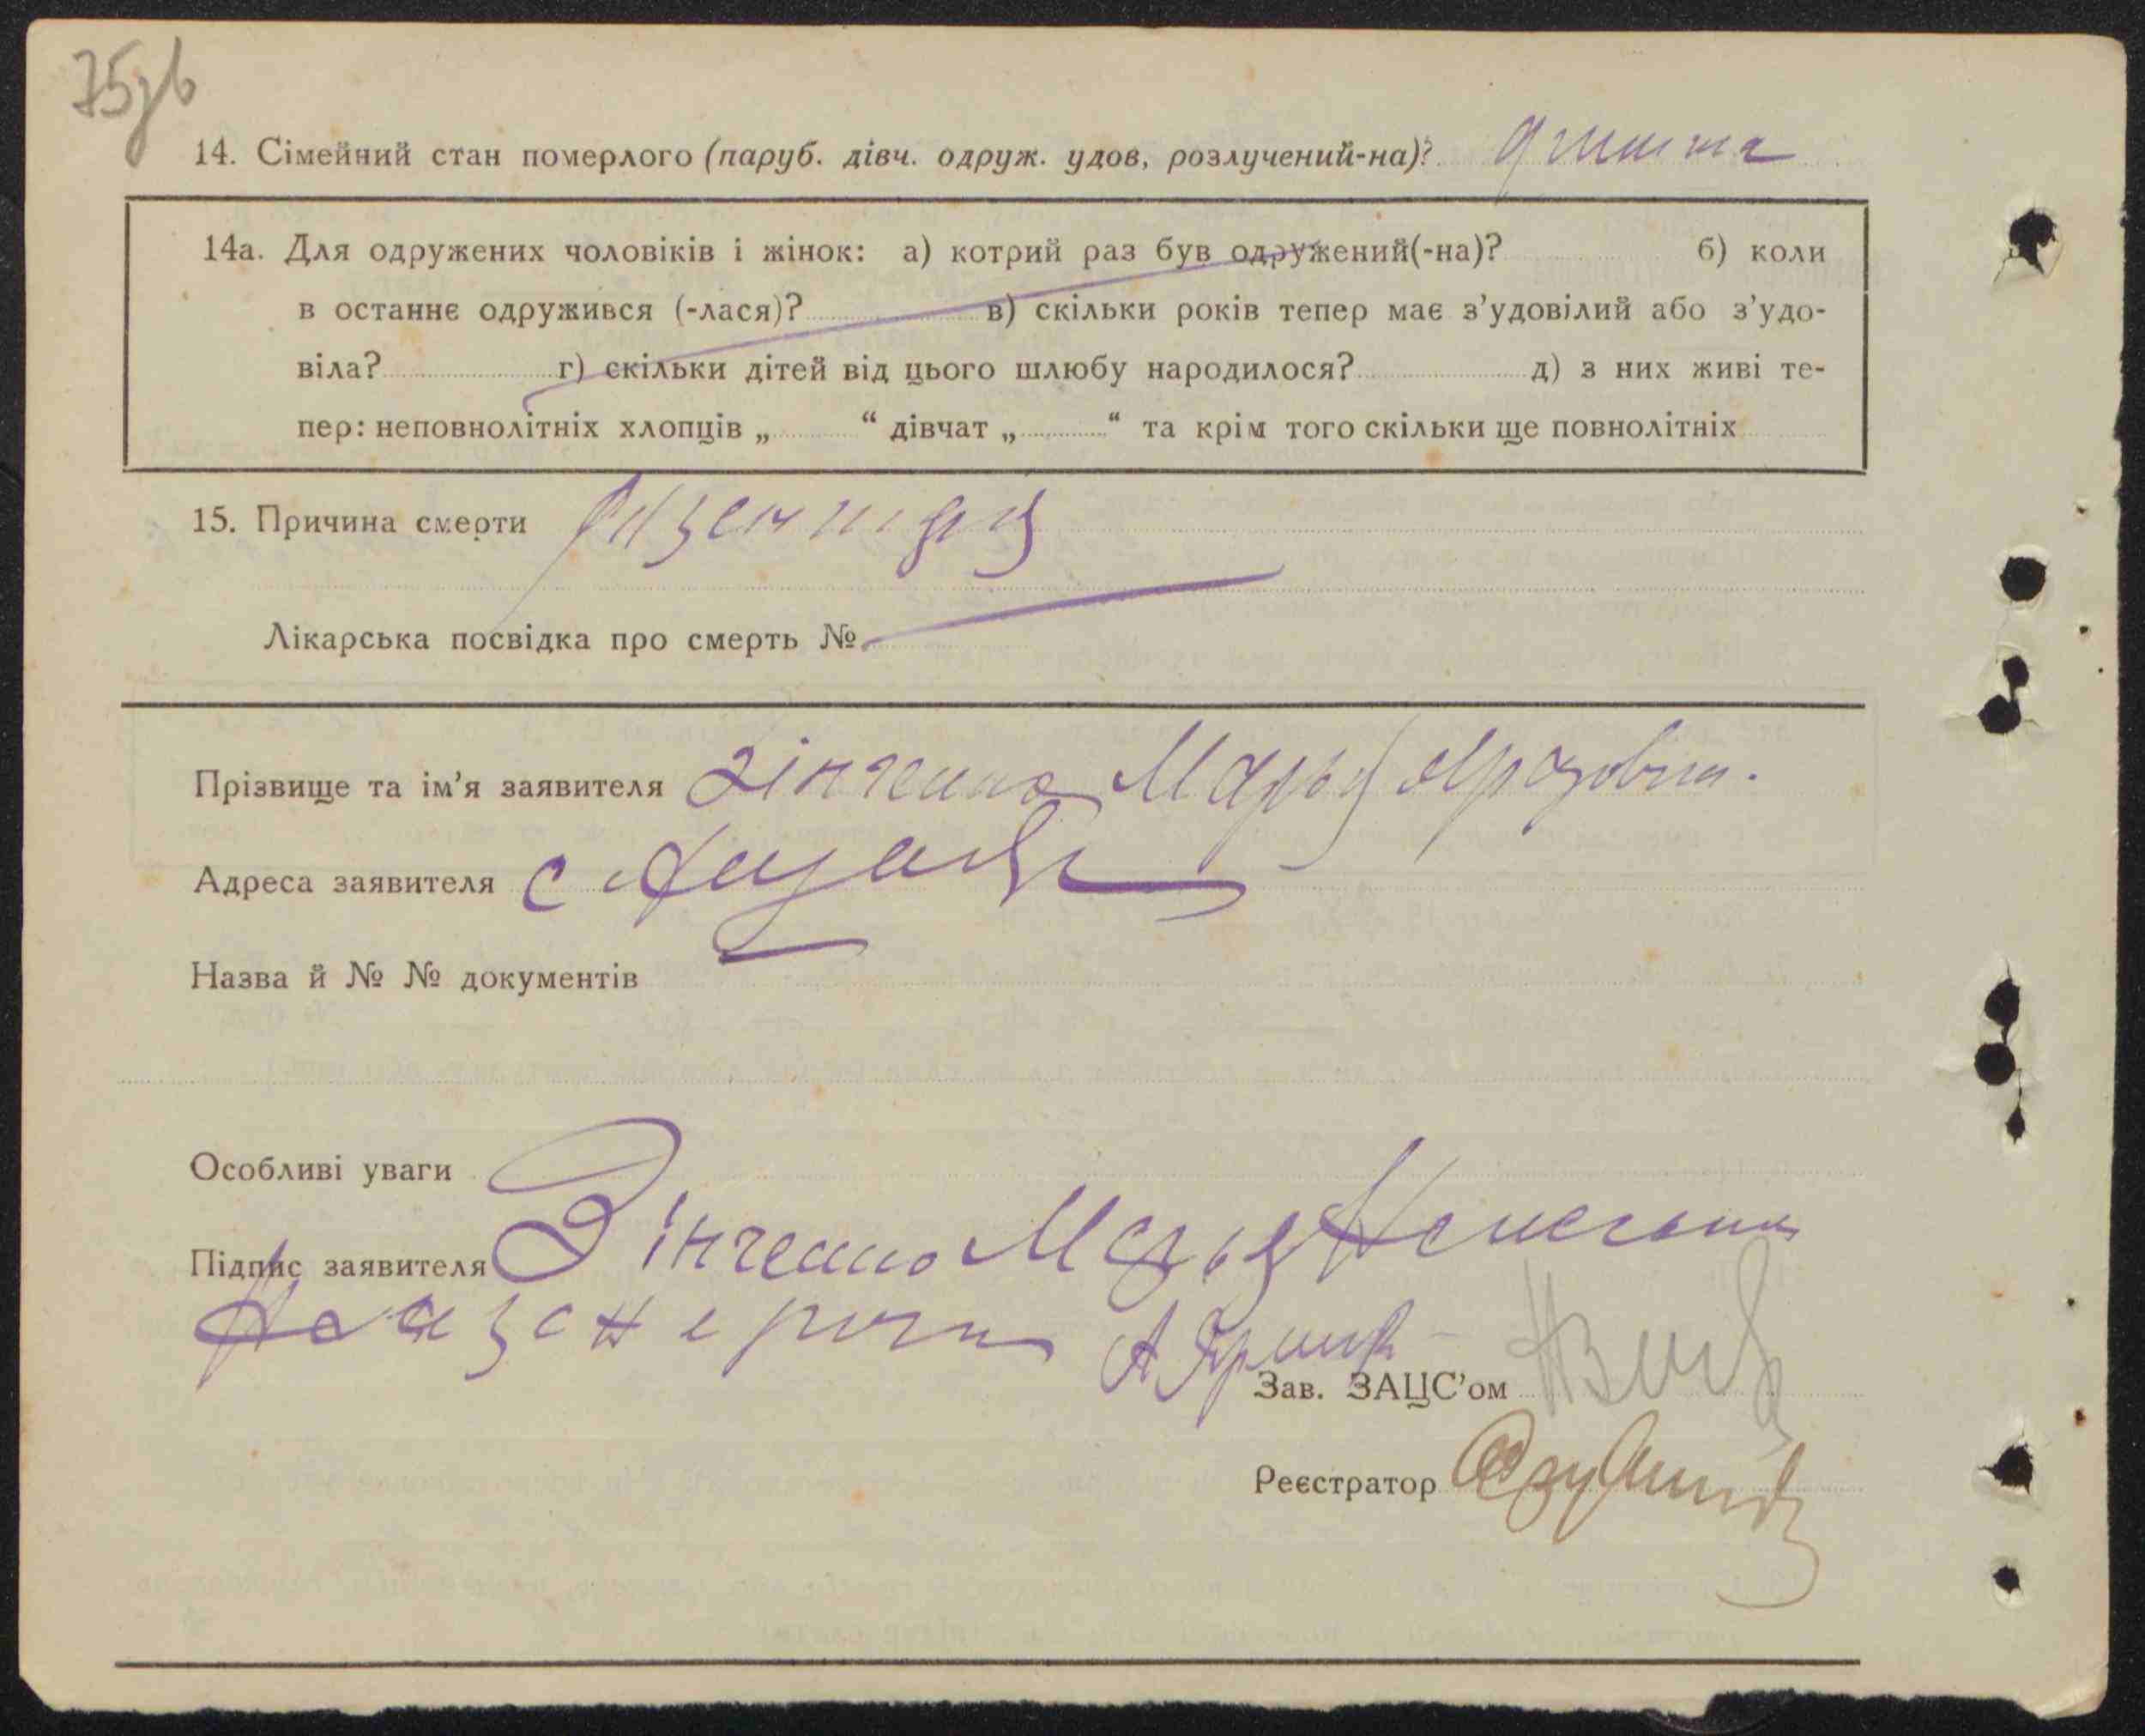 75зв
14. Сімейний стан померлого (паруб. дівч. одруж. удов, розлучений-на)? дитина
14а. Для одружених чоловіків і жінок: а) котрий раз був одружений(-на)? б) коли
в останнє одружився (-лася)? в) скільки років тепер має з'удовілий або з'удо-
віла? г) скільки дітей від цього шлюбу народилося? д) з них живі те-
пер: неповнолітніх хлопців „ “ дівчат „ “ та крім того скільки ще повнолітніх
15. Причина смерти дизентирія
Лікарська посвідка про смерть №
Прізвище та ім'я заявителя Зінченко Марья
Адреса заявителя с
Назва й № № документів
Особливі уваги
Підпис заявителя Зінченко Марья
за
Зав. ЗАЦС'ом
Реєстратор